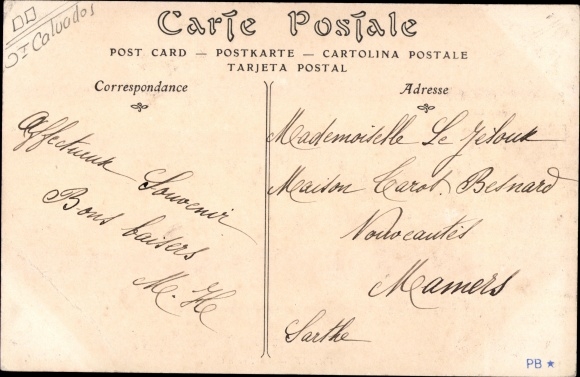 Carte Postale
POST CARD — POSTKARTE — CARTOLINA POSTALE
TARJETA POSTAL
Calvados
Correspondance
Affectueux Souvenir
Bons baisers
M. H
Adresse
Mademoiselle Le
Maison Carot. Besnard
Nouveautés
Mamers
Sarthe
PB ★